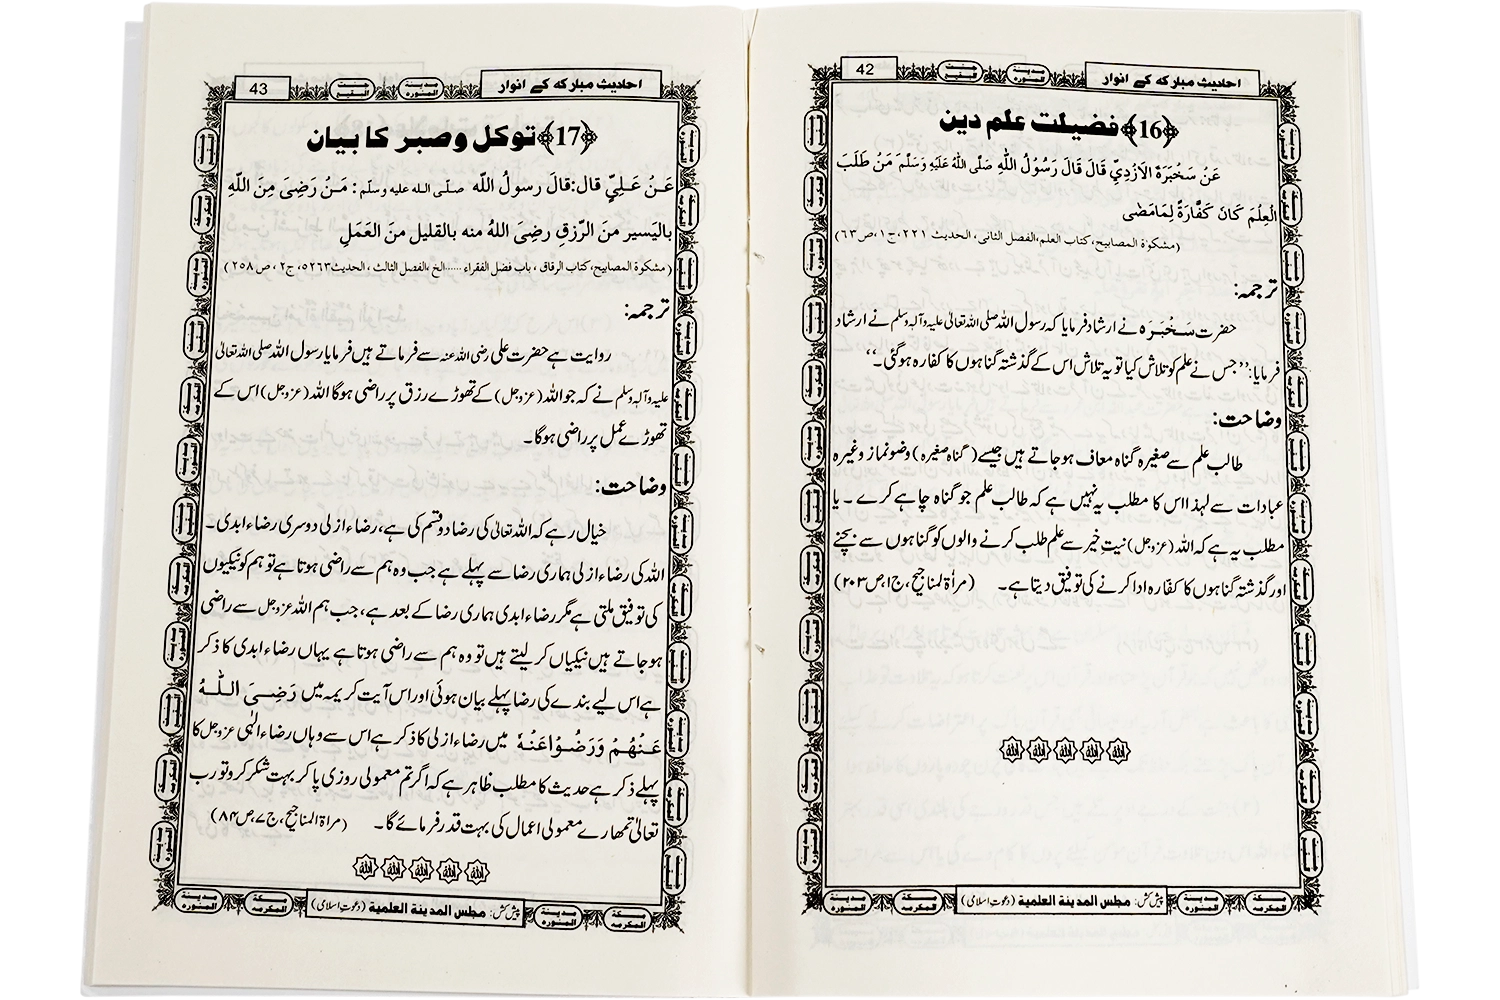 احادیث مبارکہ کے انوار
42
﴿16﴾ فضیلت علم دین
عَنْ سَخْبَرَةَ الْاَزْدِيِّ قَالَ قَالَ رَسُوْلُ اللّٰهِ صَلَّى اللّٰهُ عَلَيْهِ وَسَلَّمَ مَنْ طَلَبَ
الْعِلْمَ كَانَ كَفَّارَةً لِمَا مَضٰى
(مشکوۃ المصابیح، کتاب العلم، الفصل الثانی، الحدیث ۲۲۱، ج۱، ص۶۳)
ترجمہ:
حضرت سَخْبَرَہ نے ارشاد فرمایا کہ رسول اللہ صلی اللہ تعالیٰ علیہ وآلہ وسلم نے ارشاد
فرمایا: ’’جس نے علم کو تلاش کیا تو یہ تلاش اس کے گذشتہ گناہوں کا کفارہ ہوگئی۔‘‘
وضاحت:
طالب علم سے صغیرہ گناہ معاف ہوجاتے ہیں جیسے (گناہ صغیرہ) وضو نماز وغیرہ
عبادات سے لہذا اس کا مطلب یہ نہیں ہے کہ طالب علم جو گناہ چاہے کرے۔ یا
مطلب یہ ہے کہ اللہ (عزوجل) نیتِ خیر سے علم طلب کرنے والوں کو گناہوں سے بچنے
اور گذشتہ گناہوں کا کفارہ ادا کرنے کی توفیق دیتا ہے۔ (مراٰۃ المناجیح، ج۱ ص۲۰۳)
پیش کش: مجلس المدینة العلمیة (دعوتِ اسلامی)
احادیث مبارکہ کے انوار
43
﴿17﴾ توکل و صبر کا بیان
عَنْ عَلِيٍّ قال: قالَ رسولُ اللّٰه صلّى اللّٰه عليه وسلّم: مَنْ رَضِيَ مِنَ اللّٰهِ
باليَسيرِ منَ الرِّزقِ رضِيَ اللهُ منه بالقليل منَ العَمَلِ
(مشکوۃ المصابیح، کتاب الرقاق، باب فضل الفقراء.....الخ، الفصل الثالث، الحدیث۵۲۶۳، ج۲، ص۲۵۸)
ترجمہ:
روایت ہے حضرت علی رضی اللہ عنہ سے فرماتے ہیں فرمایا رسول اللہ صلی اللہ تعالیٰ
علیہ وآلہ وسلم نے کہ جو اللہ (عزوجل) کے تھوڑے رزق پر راضی ہوگا اللہ (عزوجل) اس کے
تھوڑے عمل پر راضی ہوگا۔
وضاحت:
خیال رہے کہ اللہ تعالیٰ کی رضا دو قسم کی ہے، رضاء ازلی دوسری رضاء ابدی۔
اللہ کی رضاء ازلی ہماری رضا سے پہلے ہے جب وہ ہم سے راضی ہوتا ہے تو ہم کو نیکیوں
کی توفیق ملتی ہے مگر رضاء ابدی ہماری رضا کے بعد ہے، جب ہم اللہ عزوجل سے راضی
ہوجاتے ہیں نیکیاں کرلیتے ہیں تو وہ ہم سے راضی ہوتا ہے یہاں رضاء ابدی کا ذکر
ہے اس لیے بندے کی رضا پہلے بیان ہوئی اور اس آیت کریمہ میں رَضِيَ اللّٰهُ
عَنْهُمْ وَرَضُوْا عَنْهُ میں رضاء ازلی کا ذکر ہے اس سے وہاں رضاء الٰہی عزوجل کا
پہلے ذکر ہے حدیث کا مطلب ظاہر ہے کہ اگر تم معمولی روزی پا کر بہت شکر کرو تو رب
تعالیٰ تمھارے معمولی اعمال کی بہت قدر فرمائے گا۔ (مراۃ المناجیح، ج۷، ص۸۴)
پیش کش: مجلس المدینة العلمیة (دعوتِ اسلامی)